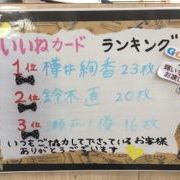 いいねカード ランキング
1位 樽井絢香 23枚
2位 鈴木直 20枚
3位 瀬戸優 16枚
いつもご協力して下さっているお客様
ありがとうございます